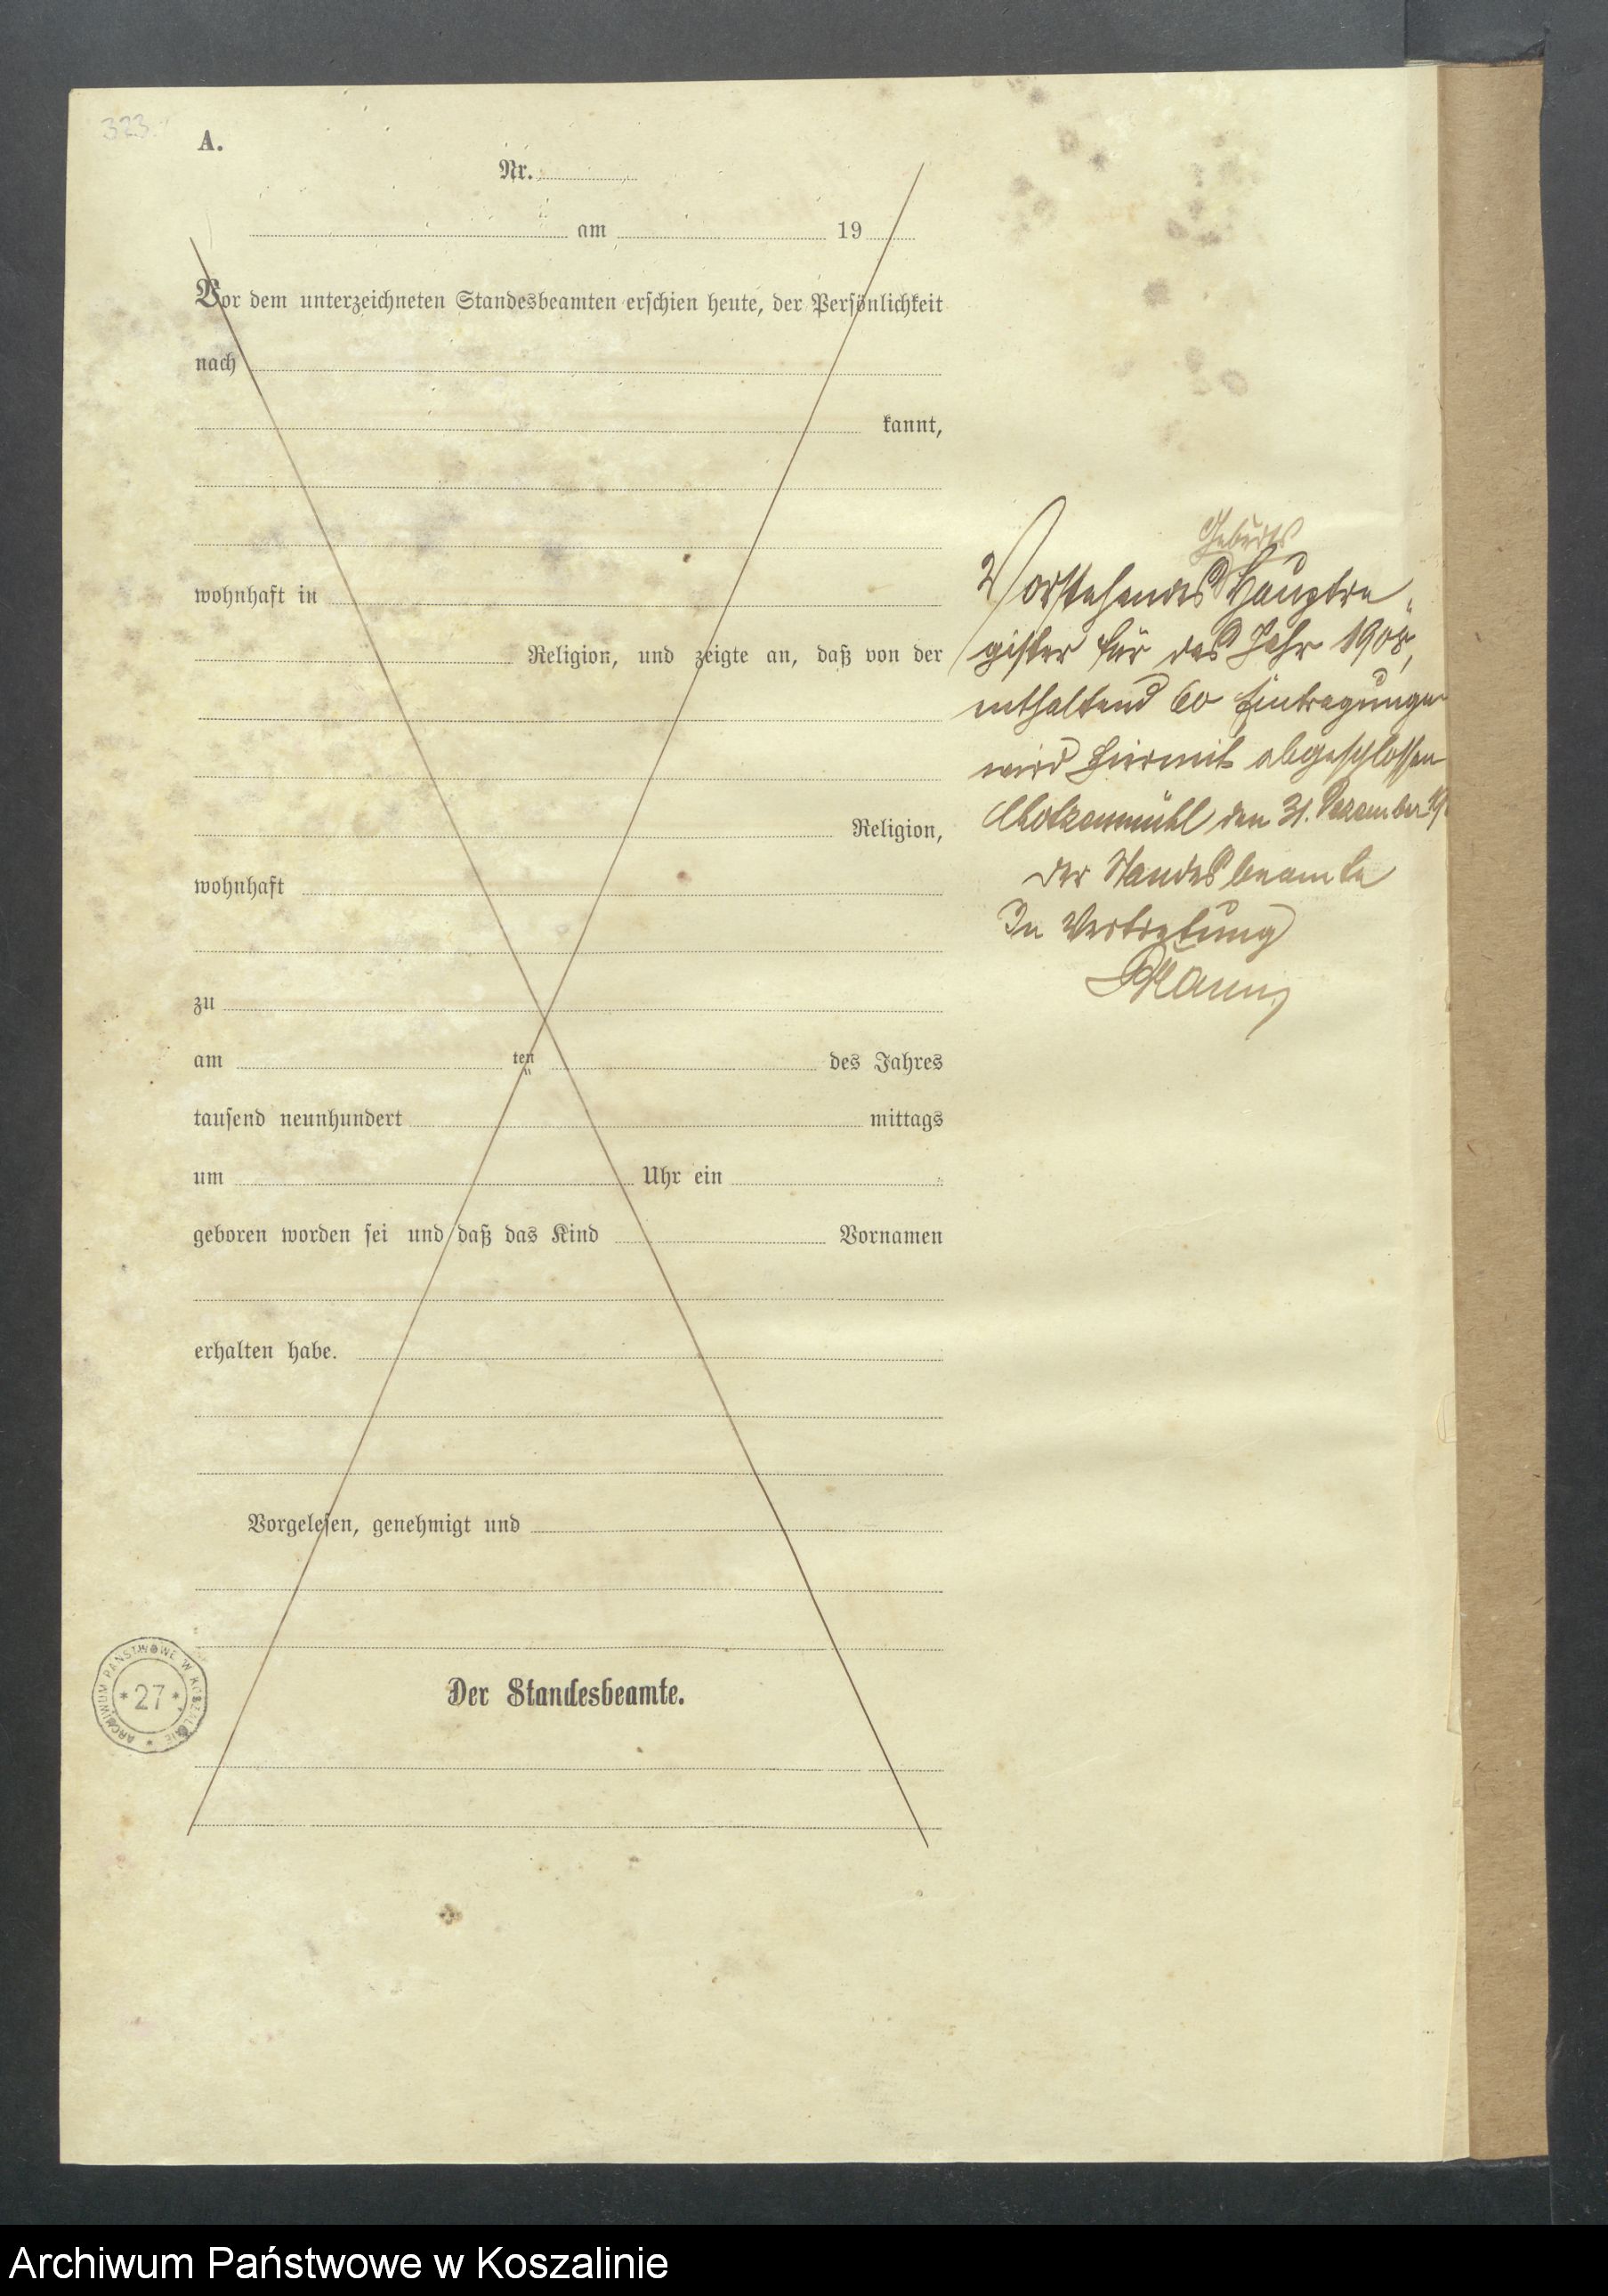 323.
A.
Nr.
am 19
Vor dem unterzeichneten Standesbeamten erschien heute, der Persönlichkeit
nach
kannt,
wohnhaft in
Religion, und zeigte an, daß von der
Religion,
wohnhaft
zu
am ten des Jahres
tausend neunhundert mittags
um Uhr ein
geboren worden sei und daß das Kind Vornamen
erhalten habe.
Vorgelesen, genehmigt und
Der Standesbeamte.
Geburts
Vorstehendes Hauptre„
gister für das Jahr 1908,
enthaltend 60 Eintragungen
wird hiermit abgeschlossen
den 31. Dezember 19
Der Standesbeamte
In Vertretung
ARCHIWUM PAŃSTWOWE W KOSZALINIE
* 27 *
Archiwum Państwowe w Koszalinie